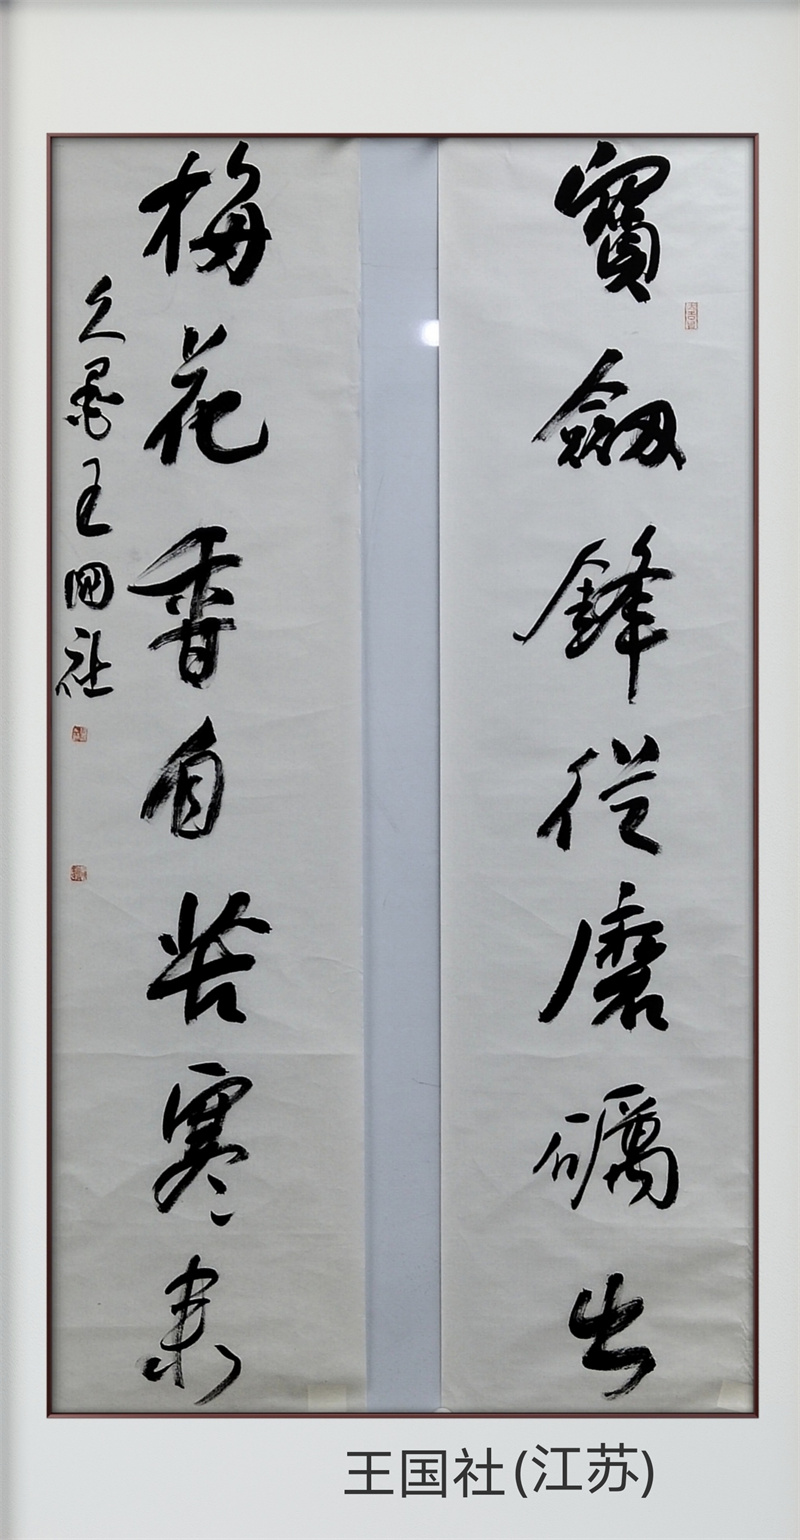 寶劔鋒從磨礪出
梅花香自苦寒來
久墨王国社
王国社(江苏)